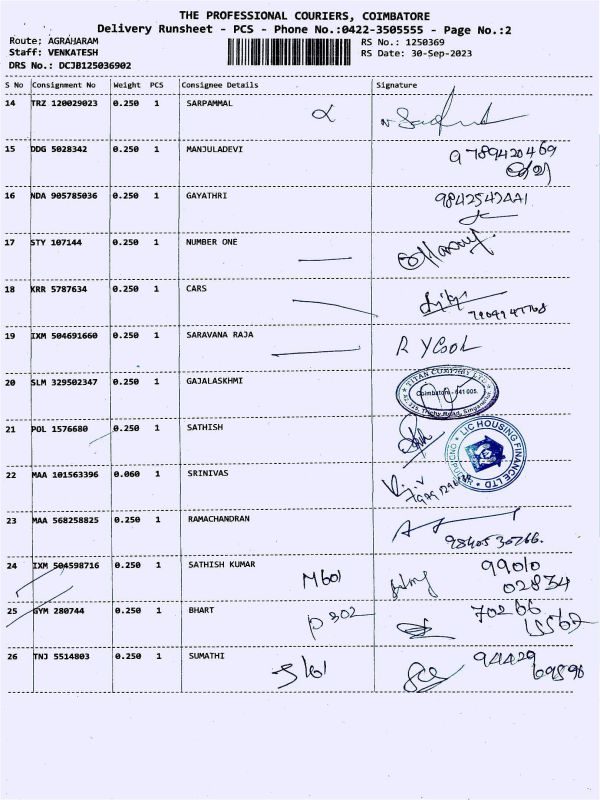 THE PROFESSIONAL COURIERS, COIMBATORE
Delivery Runsheet - PCS - Phone No.:0422-3505555 - Page No.:2
Route: AGRAHARAM RS No.: 1250369
Staff: VENKATESH RS Date: 30-Sep-2023
DRS No.: DCJB125036902
S No Consignment No Weight PCS Consignee Details Signature
14 TRZ 120029023 0.250 1 SARPAMMAL
15 DDG 5028342 0.250 1 MANJULADEVI 9789420469
16 NDA 905785036 0.250 1 GAYATHRI
17 STY 107144 0.250 1 NUMBER ONE
18 KRR 5787634 0.250 1 CARS
19 IXM 504691660 0.250 1 SARAVANA RAJA
20 SLM 329502347 0.250 1 GAJALASKHMI
TITAN COMPANY LTD
Coimbatore - 641 005.
21 POL 1576680 0.250 1 SATHISH
LIC HOUSING FINANCE LTD
22 MAA 101563396 0.060 1 SRINIVAS
23 MAA 568258825 0.250 1 RAMACHANDRAN
9840530266.
24 IXM 504598716 0.250 1 SATHISH KUMAR M601 99010
02834
25 GYM 280744 0.250 1 BHART P302 70266
15567
26 TNJ 5514803 0.250 1 SUMATHI 94429
69898